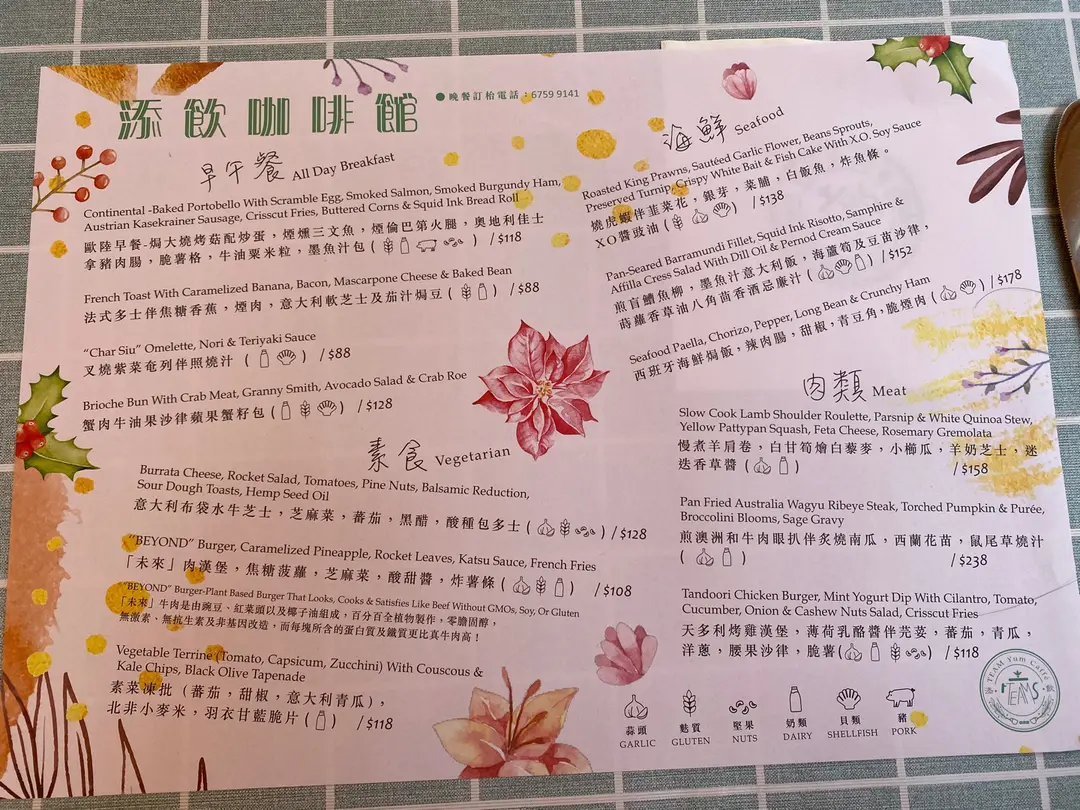 添飲咖啡館
●晚餐訂枱電話：6759 9141
早午餐 All Day Breakfast
Continental -Baked Portobello With Scramble Egg, Smoked Salmon, Smoked Burgundy Ham,
Austrian Kasekrainer Sausage, Crisscut Fries, Buttered Corns & Squid Ink Bread Roll
歐陸早餐-焗大燒烤菇配炒蛋，煙燻三文魚，煙倫巴第火腿，奧地利佳士
拿豬肉腸，脆薯格，牛油粟米粒，墨魚汁包 ( ) / $118
French Toast With Caramelized Banana, Bacon, Mascarpone Cheese & Baked Bean
法式多士伴焦糖香蕉，煙肉，意大利軟芝士及茄汁焗豆 ( ) / $88
“Char Siu” Omelette, Nori & Teriyaki Sauce
叉燒紫菜奄列伴照燒汁 ( ) / $88
Brioche Bun With Crab Meat, Granny Smith, Avocado Salad & Crab Roe
蟹肉牛油果沙律蘋果蟹籽包 ( ) / $128
素食 Vegetarian
Burrata Cheese, Rocket Salad, Tomatoes, Pine Nuts, Balsamic Reduction,
Sour Dough Toasts, Hemp Seed Oil
意大利布袋水牛芝士，芝麻菜，蕃茄，黑醋，酸種包多士 ( ) / $128
“BEYOND” Burger, Caramelized Pineapple, Rocket Leaves, Katsu Sauce, French Fries
「未來」肉漢堡，焦糖菠蘿，芝麻菜，酸甜醬，炸薯條 ( ) / $108
“BEYOND” Burger-Plant Based Burger That Looks, Cooks & Satisfies Like Beef Without GMOs, Soy, Or Gluten
「未來」牛肉是由豌豆、紅菜頭以及椰子油組成，百分百全植物製作，零膽固醇，
無激素、無抗生素及非基因改造，而每塊所含的蛋白質及鐵質更比真牛肉高！
Vegetable Terrine (Tomato, Capsicum, Zucchini) With Couscous &
Kale Chips, Black Olive Tapenade
素菜凍批 (蕃茄，甜椒，意大利青瓜)，
北非小麥米，羽衣甘藍脆片 ( ) / $118
海鮮 Seafood
Roasted King Prawns, Sautéed Garlic Flower, Beans Sprouts,
Preserved Turnip, Crispy White Bait & Fish Cake With X.O. Soy Sauce
燒虎蝦伴韭菜花，銀芽，菜脯，白飯魚，炸魚條。
XO醬豉油 ( ) / $138
Pan-Seared Barramundi Fillet, Squid Ink Risotto, Samphire &
Affilla Cress Salad With Dill Oil & Pernod Cream Sauce
煎盲鰽魚柳，墨魚汁意大利飯，海蘆筍及豆苗沙律，
蒔蘿香草油八角茴香酒忌廉汁 ( ) / $152
Seafood Paella, Chorizo, Pepper, Long Bean & Crunchy Ham
西班牙海鮮焗飯，辣肉腸，甜椒，青豆角，脆煙肉 ( ) / $178
肉類 Meat
Slow Cook Lamb Shoulder Roulette, Parsnip & White Quinoa Stew,
Yellow Pattypan Squash, Feta Cheese, Rosemary Gremolata
慢煮羊肩卷，白甘筍燴白藜麥，小櫛瓜，羊奶芝士，迷
迭香草醬 ( ) / $158
Pan Fried Australia Wagyu Ribeye Steak, Torched Pumpkin & Purée,
Broccolini Blooms, Sage Gravy
煎澳洲和牛肉眼扒伴炙燒南瓜，西蘭花苗，鼠尾草燒汁
( ) / $238
Tandoori Chicken Burger, Mint Yogurt Dip With Cilantro, Tomato,
Cucumber, Onion & Cashew Nuts Salad, Crisscut Fries
天多利烤雞漢堡，薄荷乳酪醬伴芫荽，蕃茄，青瓜，
洋蔥，腰果沙律，脆薯 ( ) / $118
蒜頭 麩質 堅果 奶類 貝類 豬
GARLIC GLUTEN NUTS DAIRY SHELLFISH PORK
YEAM Yum Caffé
YEAMS